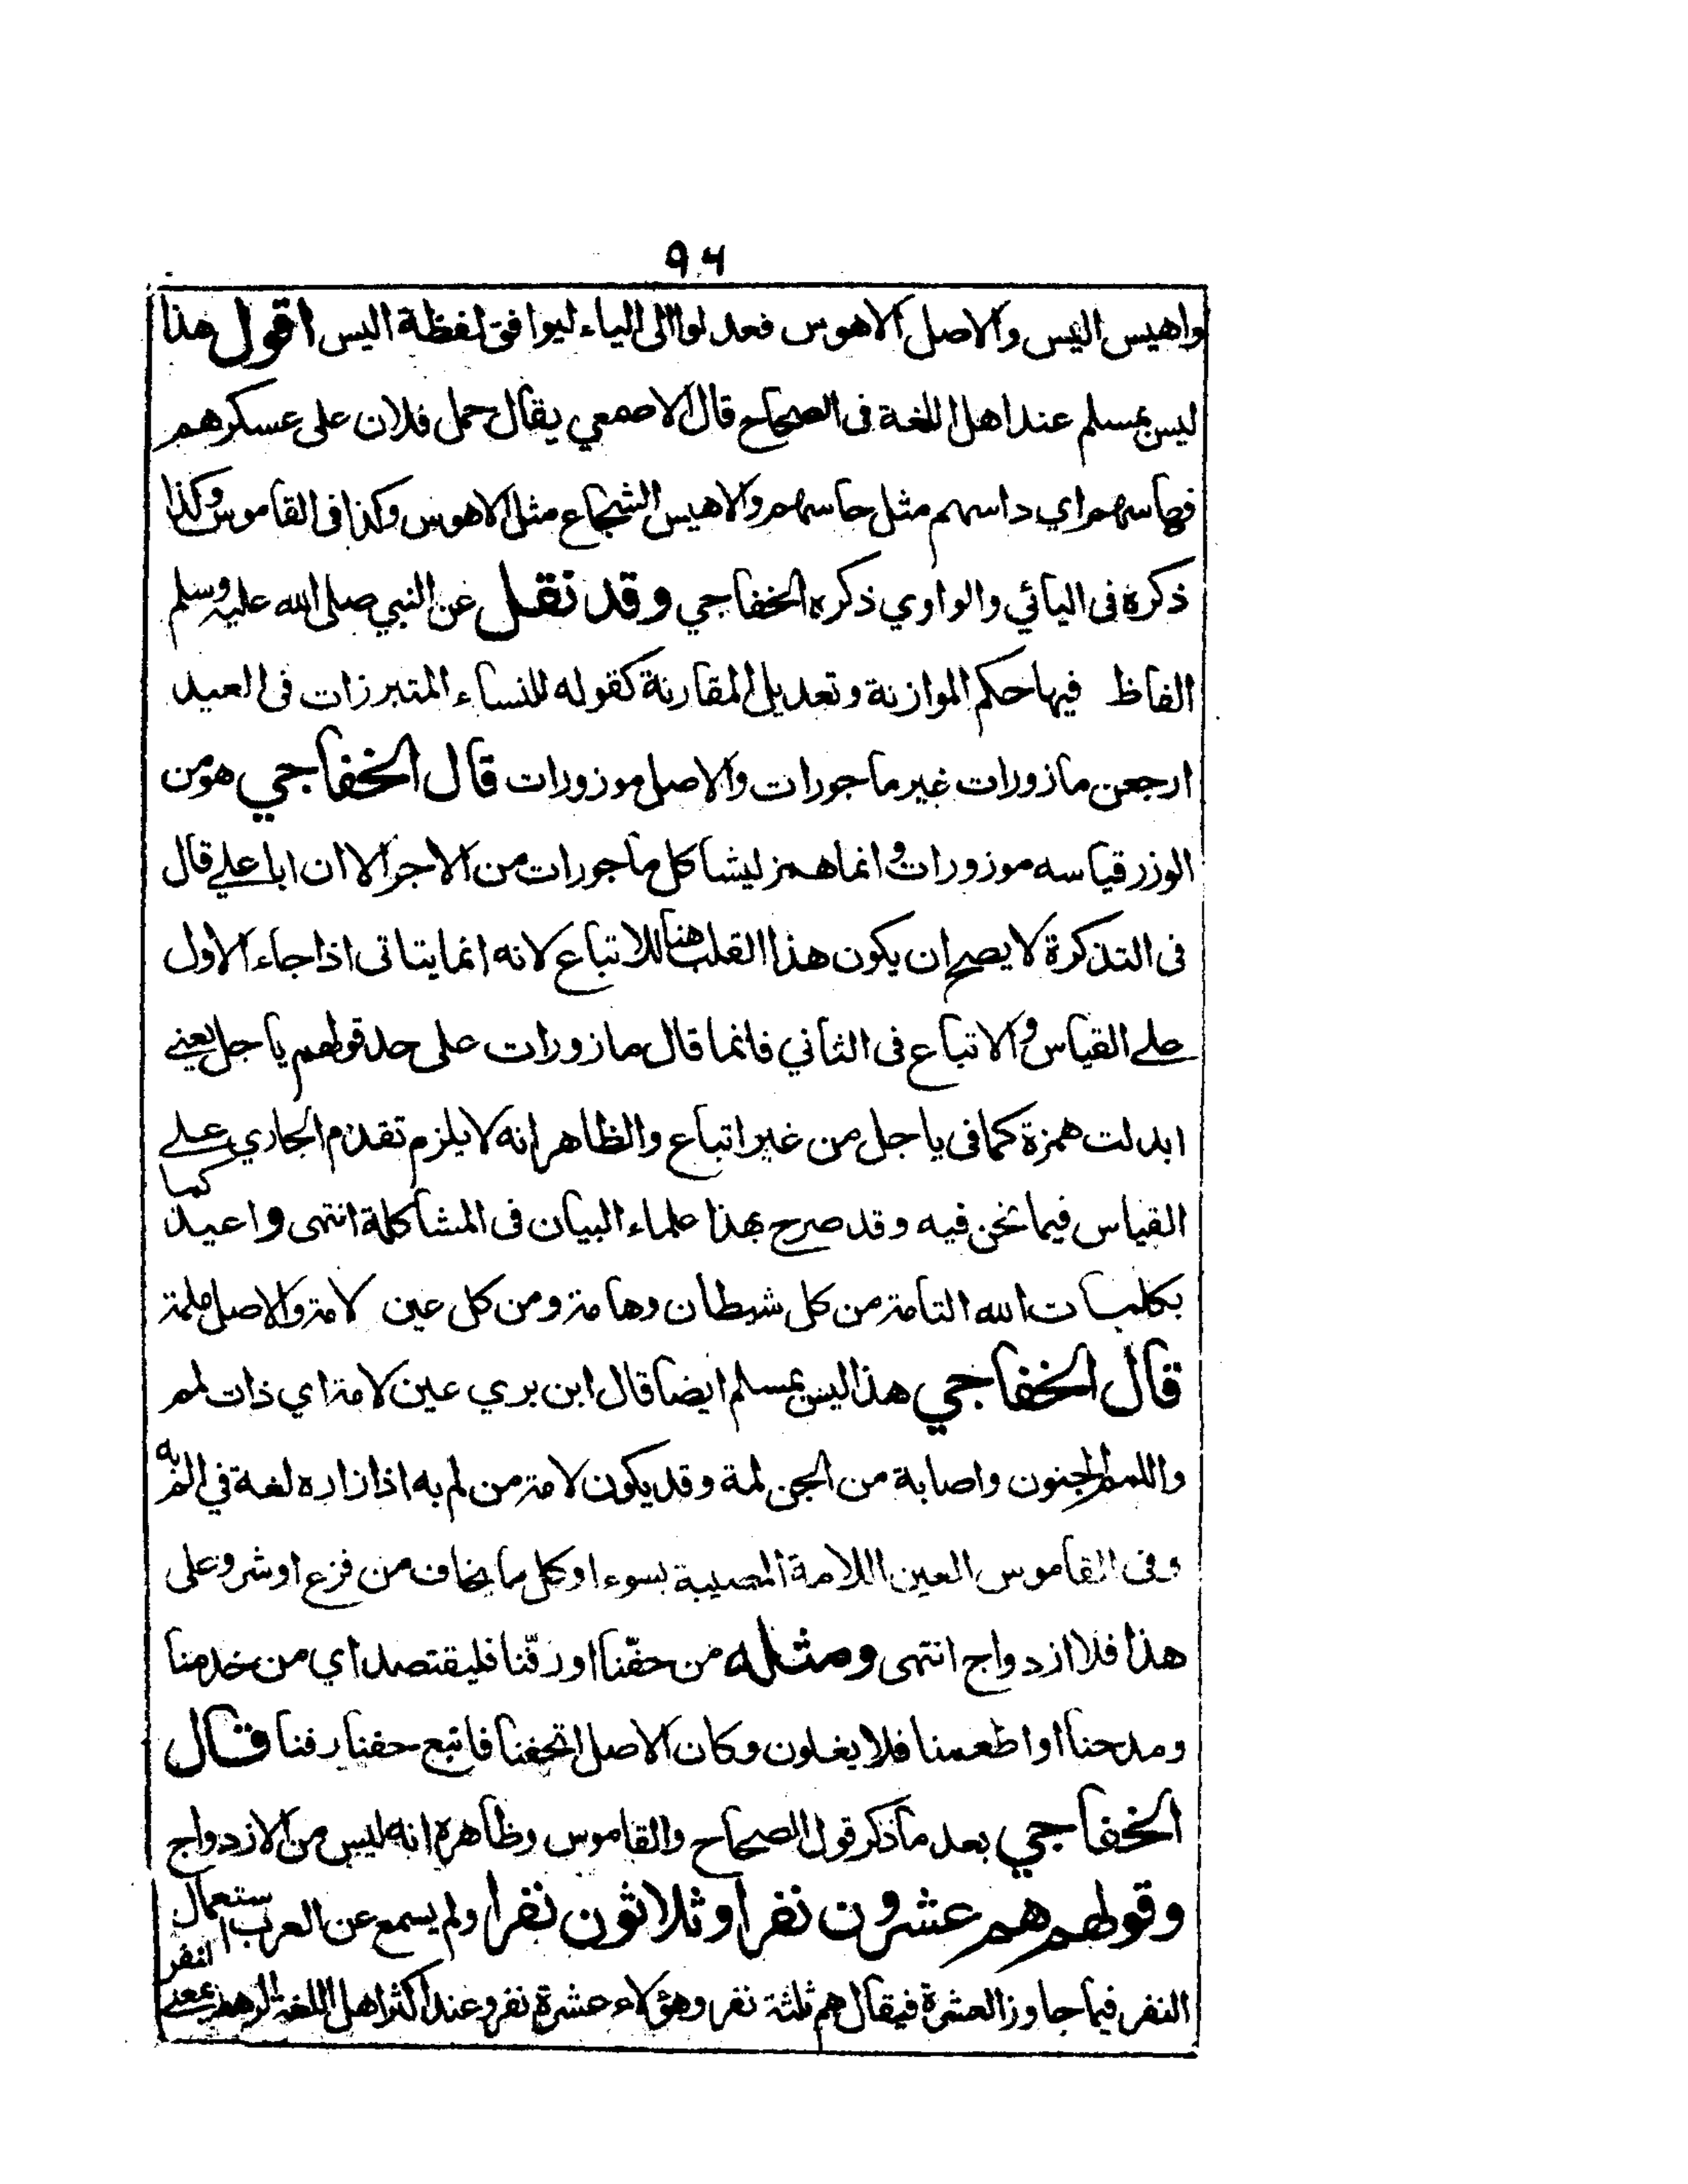 ٩٤
واهيس اليس والاصل الاهوس فعدلوا الى الياء ليوافق لفظة اليس اقول هذا
ليس بمسلم عند اهل اللغة فى الصحاح قال الاصمعي يقال حمل فلان على عسكرهم
فهاسهم اي داسهم مثل حاسهم والاهيس الشجاع مثل الاهوس وكذا فى القاموس وكذا
ذكرة فى اليائي والواوي ذكره الخفاجي وقد نقل عن النبي صلى الله عليه وسلم
الفاظ فيها حكم الموازنة وتعديل المقارنة كقوله للنساء المتبرزات فى العيد
ارجعن مازورات غير ماجورات والاصل موزورات قال الخفاجي هو من
الوزر قياسه موزورات وانما همز ليشاكل ماجورات من الاجر الا ان ابا علي قال
فى التذكرة لا يصح ان يكون هذا القلب هنا للاتباع لانه انما يتاتى اذا جاء الاول
على القياس والاتباع فى الثاني فانما قال مازورات على حد قولهم ياجل يعني
ابدلت همزة كما فى ياجل من غير اتباع والظاهر انه لا يلزم تقدم الجاري على
القياس فيما نحن فيه وقد صرح بهذا علماء البيان فى المشاكلة انتهى وكما اعيذ
بكلمات الله التامة من كل شيطان وهامة ومن كل عين لامة والاصل ملمة
قال الخفاجي هذا ليس بمسلم ايضا قال ابن بري عين لامة اي ذات لمم
واللمم الجنون واصابة من الجن لمة وقد يكون لامة من لم به اذا زاره لغة في الم به
وفى القاموس العين اللامة المصيبة بسوء او كل ما يخاف من فزع او شر وعلى
هذا فلا ازدواج انتهى ومثله من حفّنا او رفّنا فليقتصد اي من خدمنا
ومدحنا او اطعمنا فلا يغلون وكان الاصل اتحفنا فاتبع حفنا رفنا قال
الخفاجي بعد ما ذكر قول الصحاح والقاموس وظاهرة انه ليس من الازدواج
وقولهم هم عشرون نفرا وثلاثون نفرا ولم يسمع عن العرب استعمال النفر
النفر فيما جاوز العشرة فيقال هم ثلثة نفر وهؤلاء عشرة نفر وعند اكثر اهل اللغة الرهط بمعنى